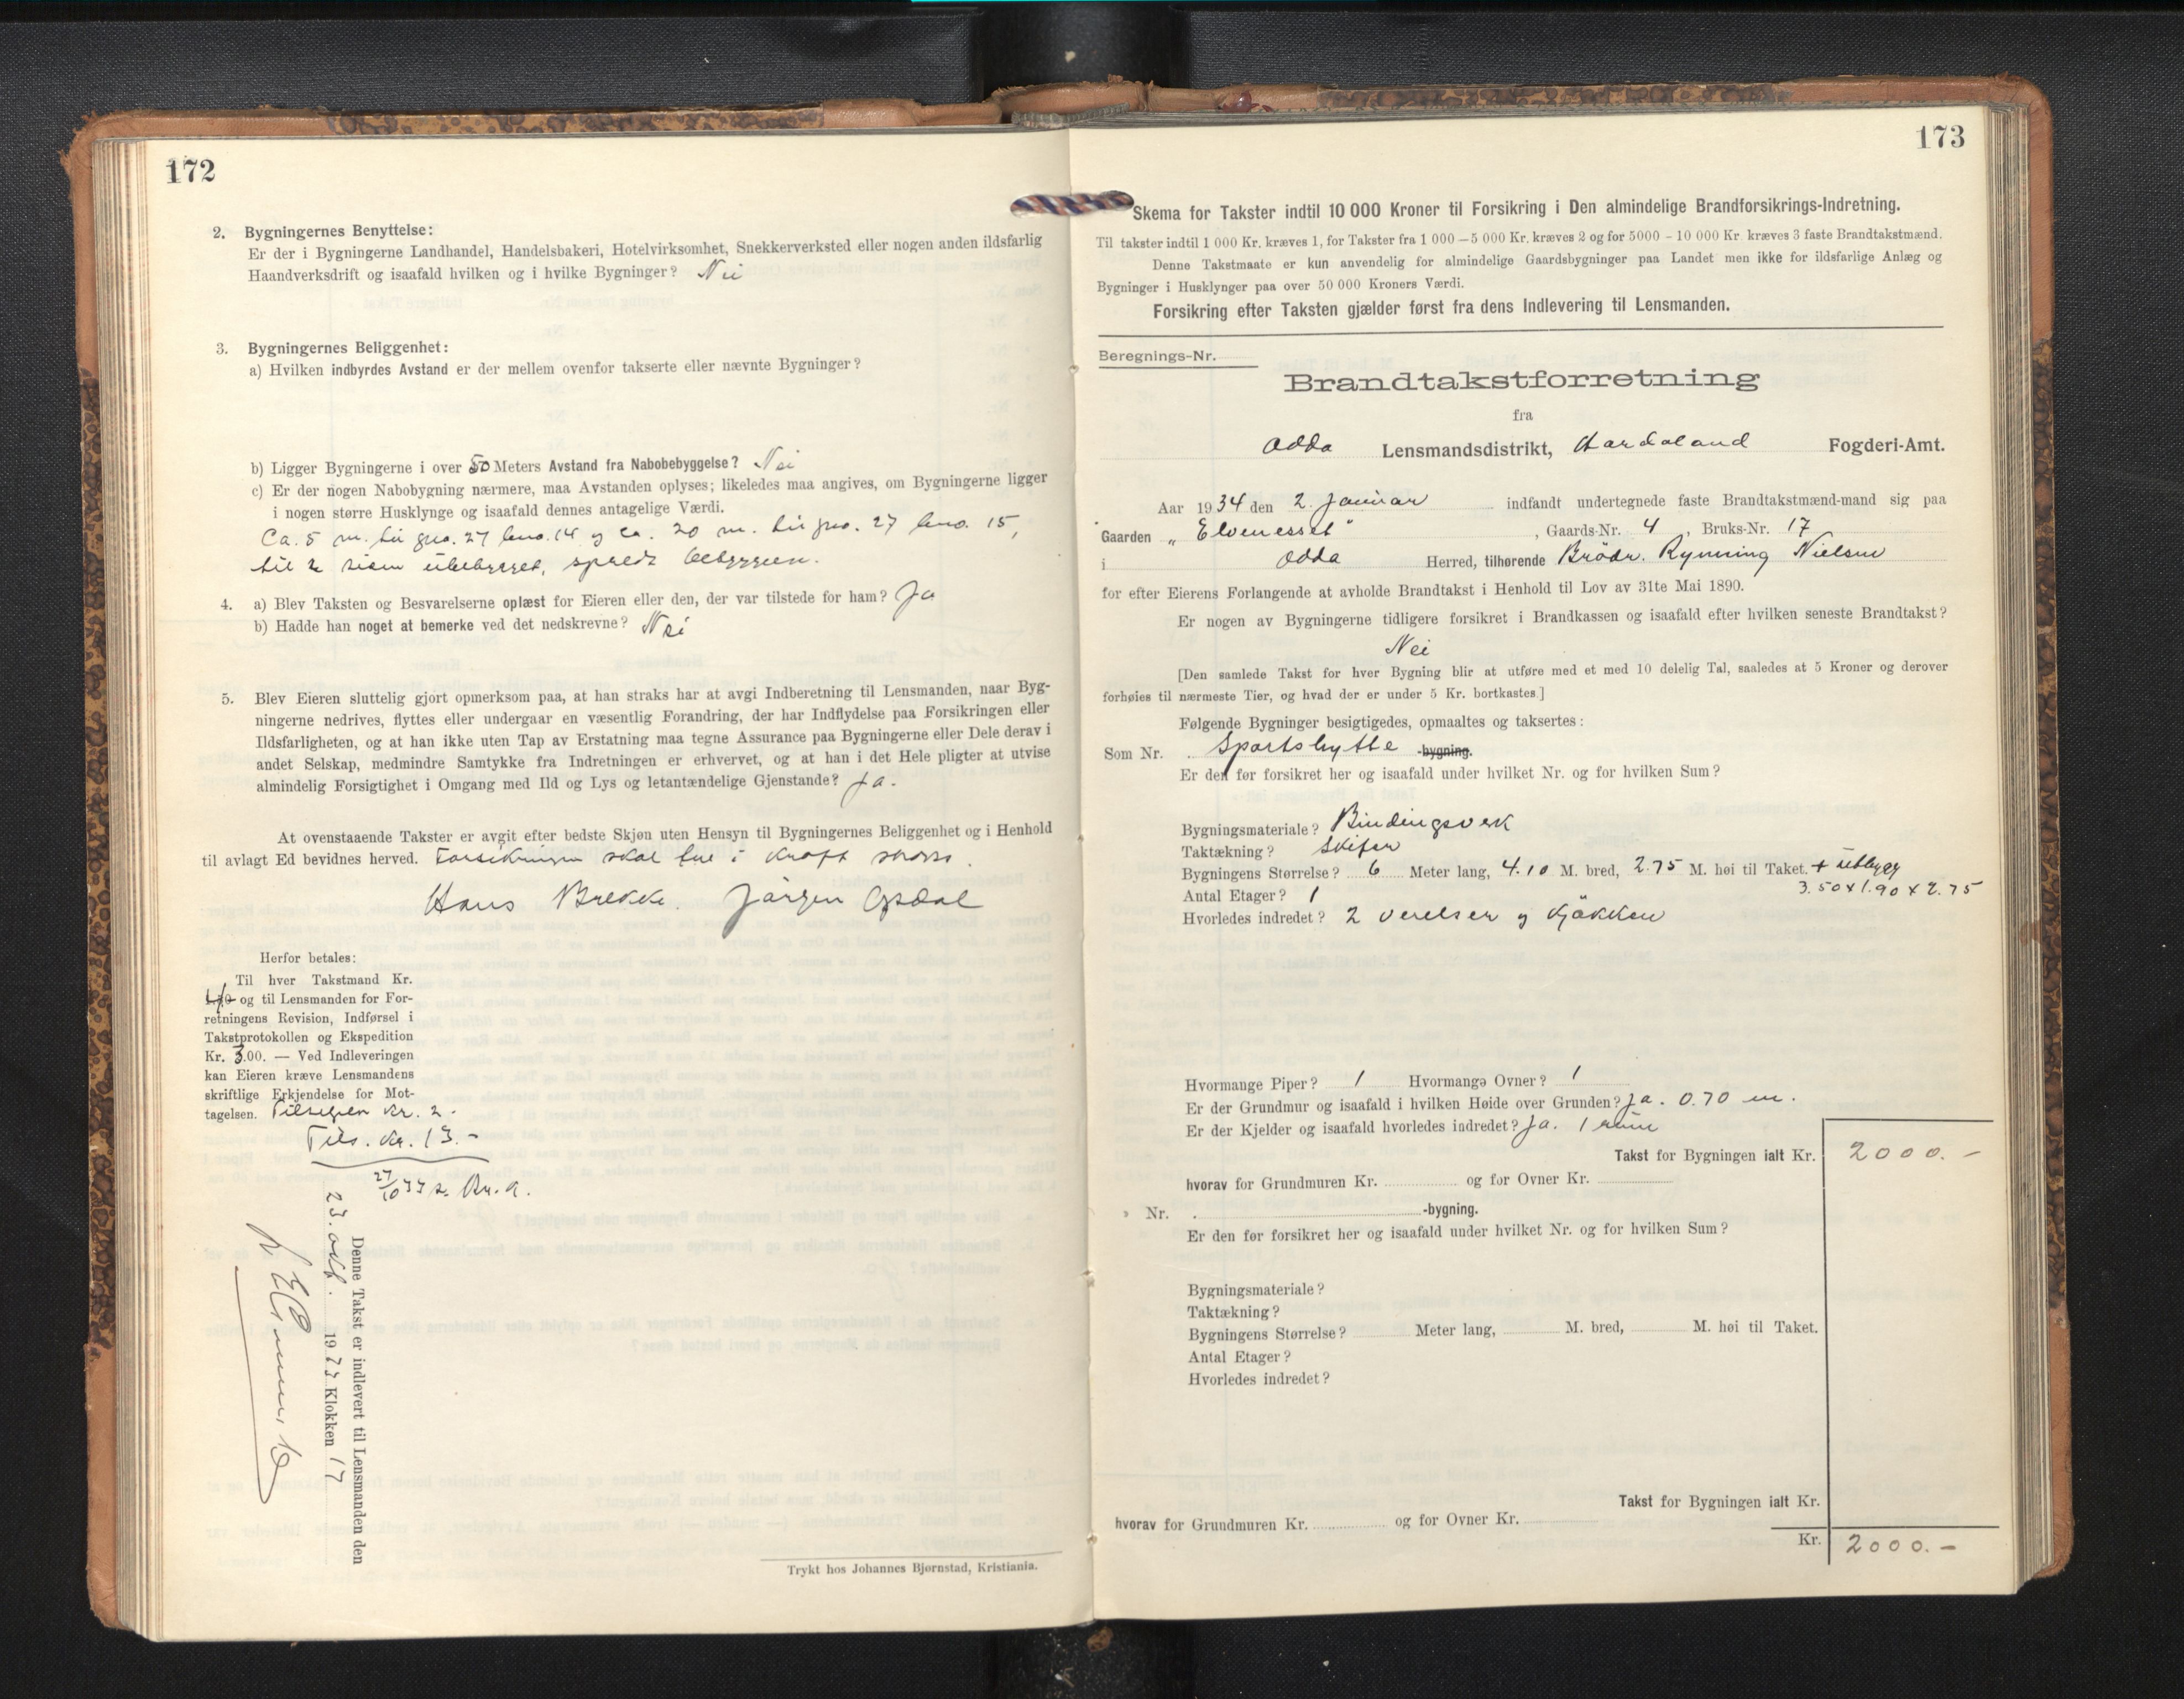 172
2. Bygningernes Benyttelse:
Er der i Bygningerne Landhandel, Handelsbakeri, Hotelvirksomhet, Snekkerverksted eller nogen anden ildsfarlig
Haandverksdrift og isaafald hvilken og i hvilke Bygninger? Nei
3. Bygningernes Beliggenhet:
a) Hvilken indbyrdes Avstand er der mellem ovenfor takserte eller nævnte Bygninger?
b) Ligger Bygningerne i over 50 Meters Avstand fra Nabobebyggelse? Nei
c) Er der nogen Nabobygning nærmere, maa Avstanden oplyses; likeledes maa angives, om Bygningerne ligger
i nogen større Husklynge og isaafald dennes antagelige Værdi.
Ca. 5 m. til gno. 27 bno. 14 og ca. 20 m. til gno. 27 bno. 15,
til 2 sider ubebygget, spredt
4. a) Blev Taksten og Besvarelserne oplæst for Eieren eller den, der var tilstede for ham? Ja
b) Hadde han noget at bemerke ved det nedskrevne? Nei
5. Blev Eieren sluttelig gjort opmerksom paa, at han straks har at avgi Indberetning til Lensmanden, naar Byg-
ningerne nedrives, flyttes eller undergaar en væsentlig Forandring, der har Indflydelse paa Forsikringen eller
Ildsfarligheten, og at han ikke uten Tap av Erstatning maa tegne Assurance paa Bygningerne eller Dele derav i
andet Selskap, medmindre Samtykke fra Indretningen er erhvervet, og at han i det Hele pligter at utvise
almindelig Forsigtighet i Omgang med Ild og Lys og letantændelige Gjenstande? Ja.
At ovenstaaende Takster er avgit efter bedste Skjøn uten Hensyn til Bygningernes Beliggenhet og i Henhold
til avlagt Ed bevidnes herved. Forsikringen skal tre i kraft straks.
Hans Brekke. Jørgen Opsdal
Herfor betales:
Til hver Takstmand Kr.
og til Lensmanden for For-
retningens Revision, Indførsel i
Takstprotokollen og Ekspedition
Kr. 3.00. — Ved Indleveringen
kan Eieren kræve Lensmandens
skriftlige Erkjendelse for Mot-
tagelsen. Kr. 2.-
Tils. Kr. 13.-
27/10 33
Denne Takst er indlevert til Lensmanden den
23. okt. 1933 Klokken 17
Trykt hos Johannes Bjørnstad, Kristiania.
173
Skema for Takster indtil 10 000 Kroner til Forsikring i Den almindelige Brandforsikrings-Indretning.
Til takster indtil 1 000 Kr. kræves 1, for Takster fra 1 000 — 5 000 Kr. kræves 2 og for 5000 - 10 000 Kr. kræves 3 faste Brandtakstmænd.
Denne Takstmaate er kun anvendelig for almindelige Gaardsbygninger paa Landet men ikke for ildsfarlige Anlæg og
Bygninger i Husklynger paa over 50 000 Kroners Værdi.
Forsikring efter Taksten gjælder først fra dens Indlevering til Lensmanden.
Beregnings-Nr.
Brandtakstforretning
fra
Odda Lensmandsdistrikt, Hordaland Fogderi-Amt.
Aar 1934 den 2. januar indfandt undertegnede faste Brandtakstmænd-mand sig paa
Gaarden „Elvenesset" , Gaards-Nr. 4 , Bruks-Nr. 17
i Odda Herred, tilhørende Brødr. Rynning Nielsen
for efter Eierens Forlangende at avholde Brandtakst i Henhold til Lov av 31te Mai 1890.
Er nogen av Bygningerne tidligere forsikret i Brandkassen og isaafald efter hvilken seneste Brandtakst?
Nei
[Den samlede Takst for hver Bygning blir at utføre med et med 10 delelig Tal, saaledes at 5 Kroner og derover
forhøies til nærmeste Tier, og hvad der er under 5 Kr. bortkastes.]
Følgende Bygninger besigtigedes, opmaaltes og taksertes:
Som Nr. Sportshytte -bygning.
Er den før forsikret her og isaafald under hvilket Nr. og for hvilken Sum?
Bygningsmateriale? Bindingsverk
Taktækning? Skifer
Bygningens Størrelse? 6 Meter lang, 4.10 M. bred, 2.75 M. høi til Taket. + utbygg
Antal Etager? 1 3.50 x 1.90 x 2.75
Hvorledes indredet? 2 verelser og kjøkken
Hvormange Piper? 1 Hvormange Ovner? 1
Er der Grundmur og isaafald i hvilken Høide over Grunden? Ja. 0.70 m.
Er der Kjelder og isaafald hvorledes indredet? Ja. 1 rum
Takst for Bygningen ialt Kr. 2000.-
hvorav for Grundmuren Kr. og for Ovner Kr.
» Nr. -bygning.
Er den før forsikret her og isaafald under hvilket Nr. og for hvilken Sum?
Bygningsmateriale?
Taktækning?
Bygningens Størrelse? Meter lang, M. bred, M. høi til Taket.
Antal Etager?
Hvorledes indredet?
Takst for Bygningen ialt Kr.
hvorav for Grundmuren Kr. og for Ovner Kr.
Kr. 2000.-